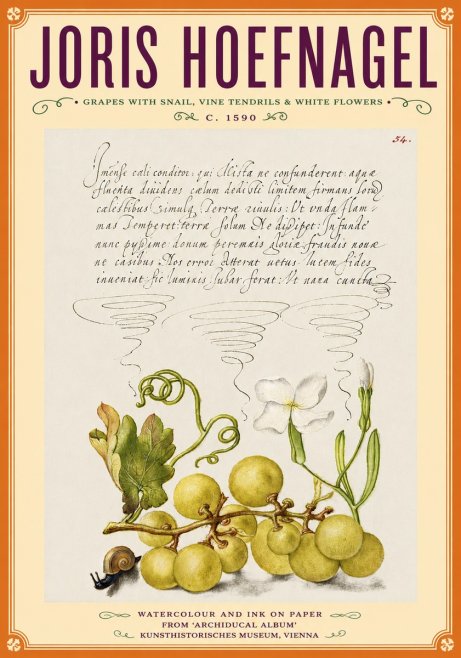 JORIS HOEFNAGEL
GRAPES WITH SNAIL, VINE TENDRILS & WHITE FLOWERS
C. 1590
54.
Imense cæli conditor: qui Mista ne confunderent aquæ
fluenta diuidens cælum dedisti limitem firmans locū
cælestibus Simulq Terræ riuulis: Vt onda flam-
mas Temperet: terræ solum Ne disipet: Infunde
nunc pyssime donum peremnis gloriæ fraudis nouæ
ne casibus Nos error atterat uetus lucem fides
inueniat sic luminis Iubar ferat: Vt uana cuncta
WATERCOLOUR AND INK ON PAPER
FROM 'ARCHIDUCAL ALBUM'
KUNSTHISTORISCHES MUSEUM, VIENNA